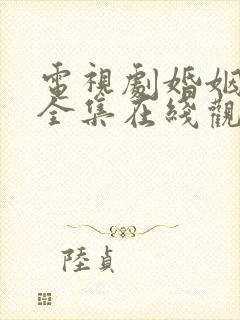 電視劇婚姻
全集在綫觀
陸貞